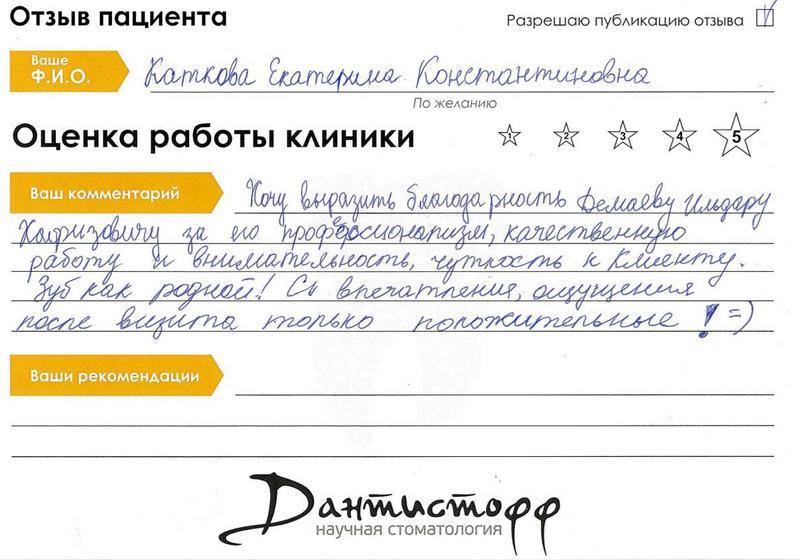 Отзыв пациента
Разрешаю публикацию отзыва
Ваше
Ф.И.О.
Каткова Екатерина Константиновна
По желанию
Оценка работы клиники
1 2 3 4 5
Ваш комментарий
Хочу выразить благодарность Демаеву Ильдару
Хафизовичу за его профессионализм, качественную
работу и внимательность, чуткость к клиенту.
Зуб как родной! Сь впечатления, ощущения
после визита только положительные ! =)
Ваши рекомендации
Дантистофф
научная стоматология